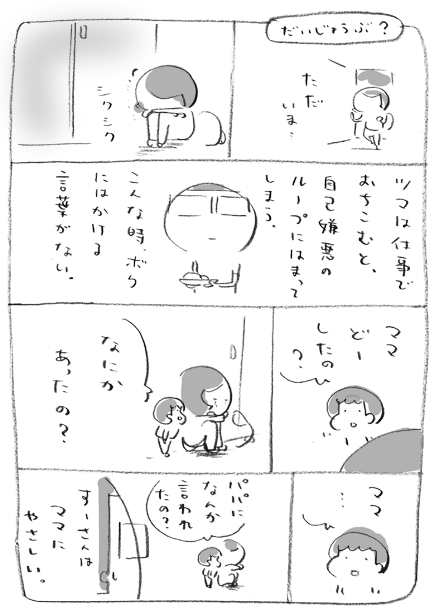 だいじょうぶ？
ただ
いま…
シクシク
ツマは仕事で
おちこむと、
自己嫌悪の
ループにはまって
しまう。
こんな時、ボク
にはかける
言葉がない。
ママ
どー
したの
？
なにか
あったの？
ママ
…
パパに
なんか
言われ
たの？
すーさんは
ママに
やさしい。